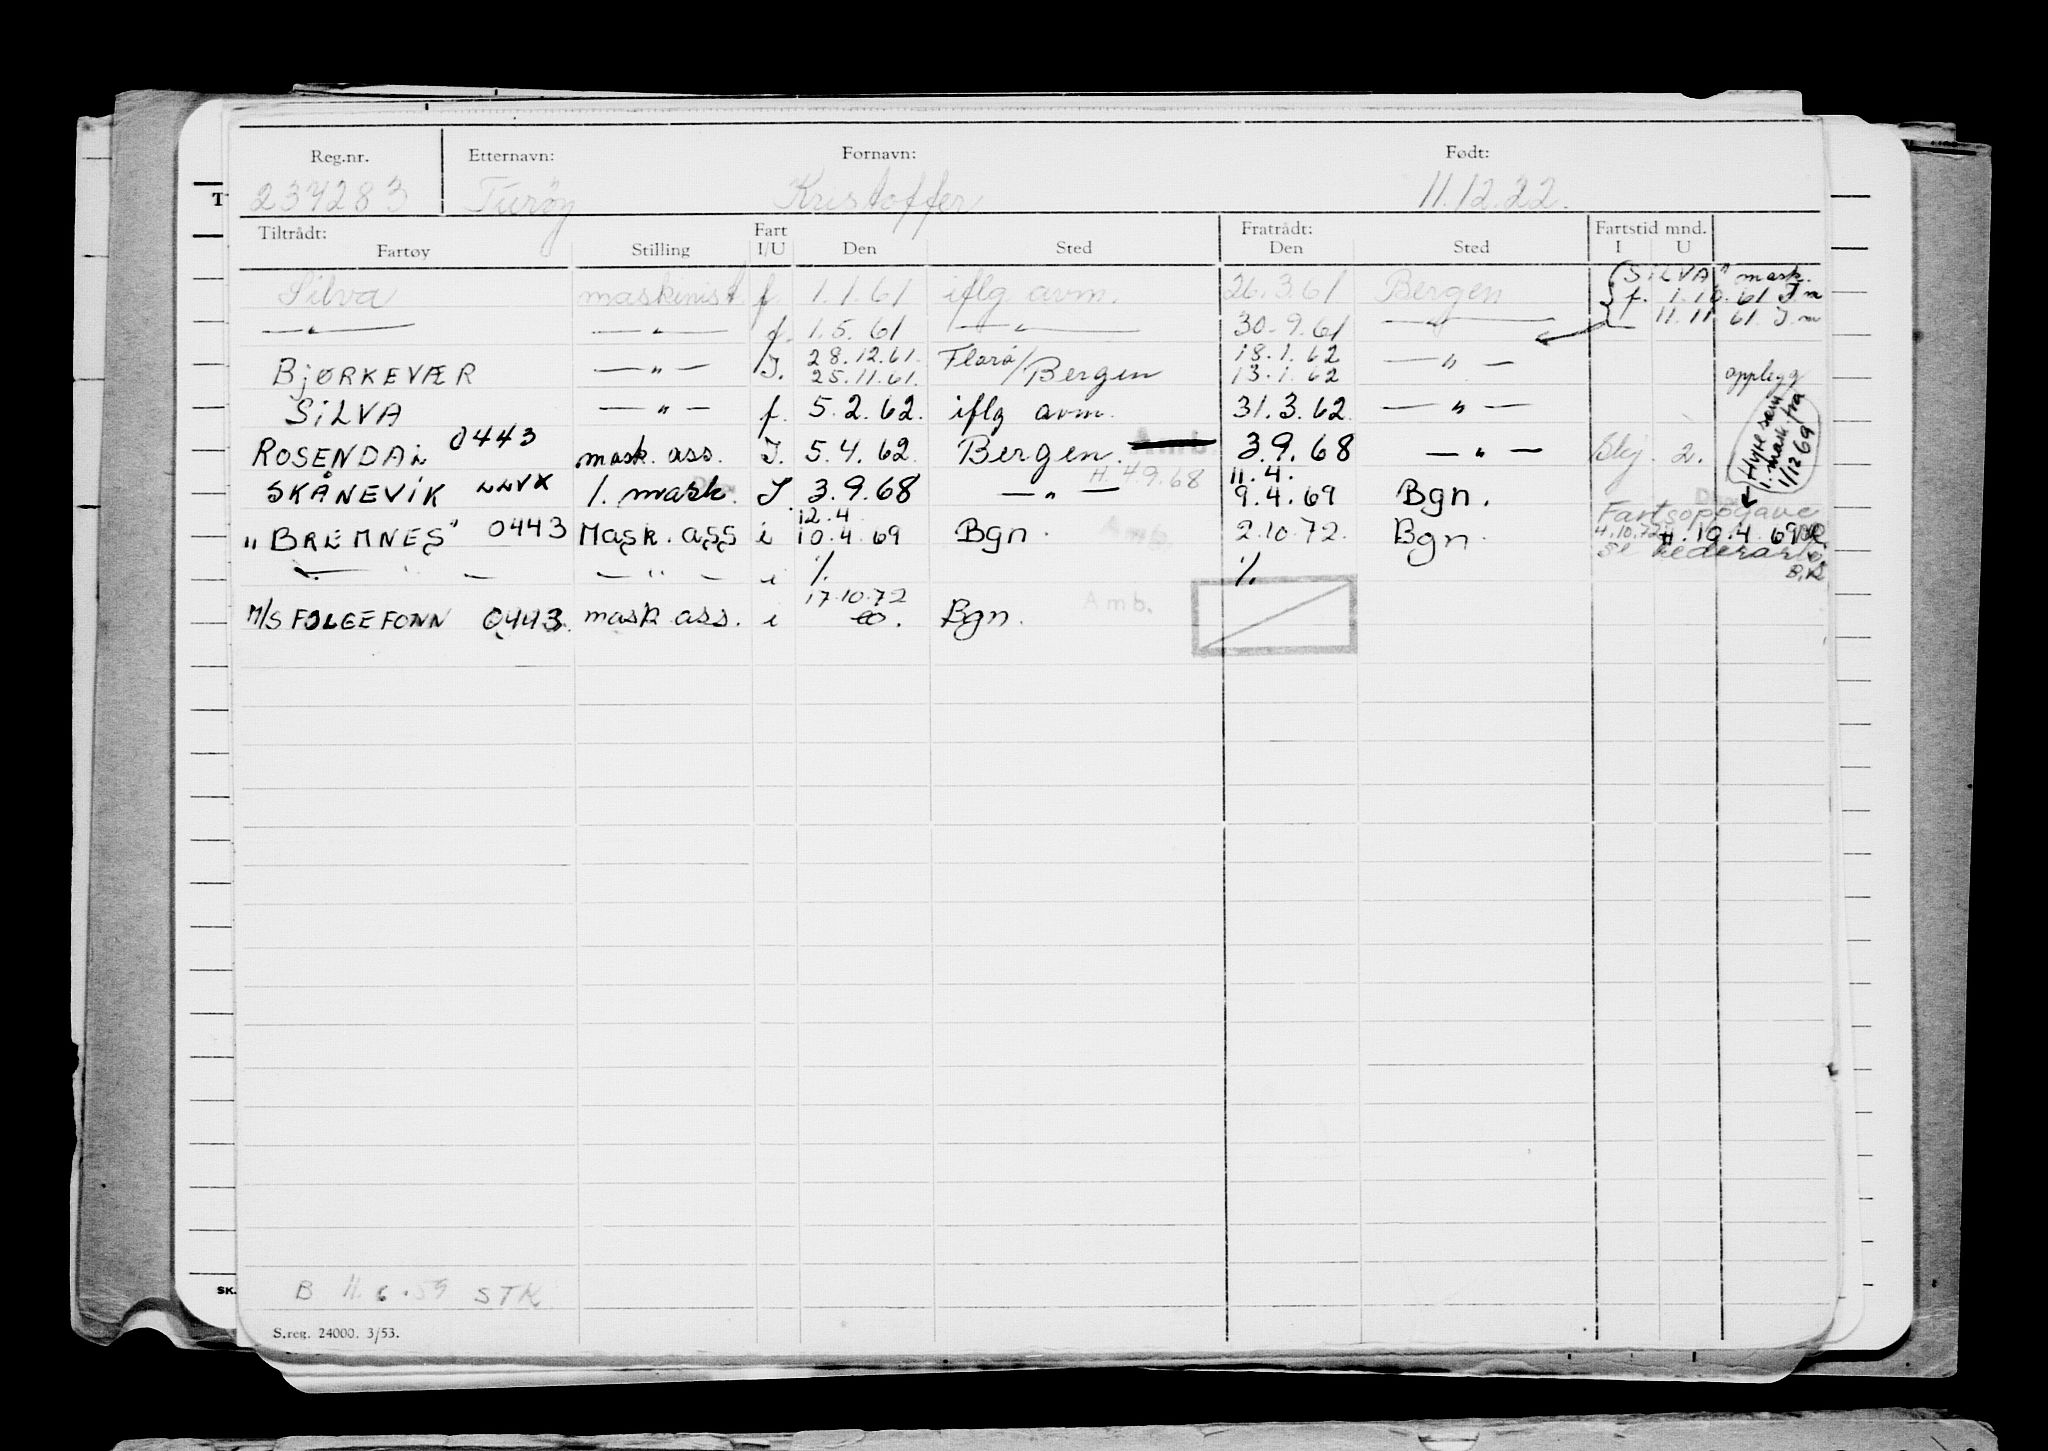 Reg.nr. Etternavn: Fornavn: Født:
237283 Turøy Kristoffer 11.12.22.
Tiltrådt: Fart Fratrådt: Fartstid mnd.
Fartøy Stilling I/U Den Sted Den Sted I U
Silva maskinist f. 1.1.61 iflg avm. 26.3.61 Bergen
("SILVA" mask.
f. 1.10.61 I m
11.11 61 I m
— " — — " — f. 1.5.61 — " — 30.9.61 — " —
28.12.61. Florø/ 18.1.62
BJØRKEVÆR — " — I. 25.11.61. Bergen 13.1.62 — " — opplegg
SILVA — " — f. 5.2.62. iflg avm. 31.3.62. — " —
ROSENDAL 0443 mask. ass. I. 5.4.62. Bergen. Amb. 3.9.68 — " — 2.
H. 4.9.68 11.4.
SKÅNEVIK LLVX 1. mask. I 3.9.68 — " — 9.4.69 Bgn.
Hyre som
1. mask. fra
1/12 69
12.4 Fartsoppgave
"BREMNES" 0443 Mask. ass i 10.4.69 Bgn. Amb. 2.10.72. Bgn. 4.10.72 H. 10.4.69
se rederiark
— " — — " — i %. %.
17.10.72
M/S FOLGEFONN 0443. mask ass. i Bgn. Amb.
B 11.6.59 STK
SK.
S.reg. 24000. 3/53.